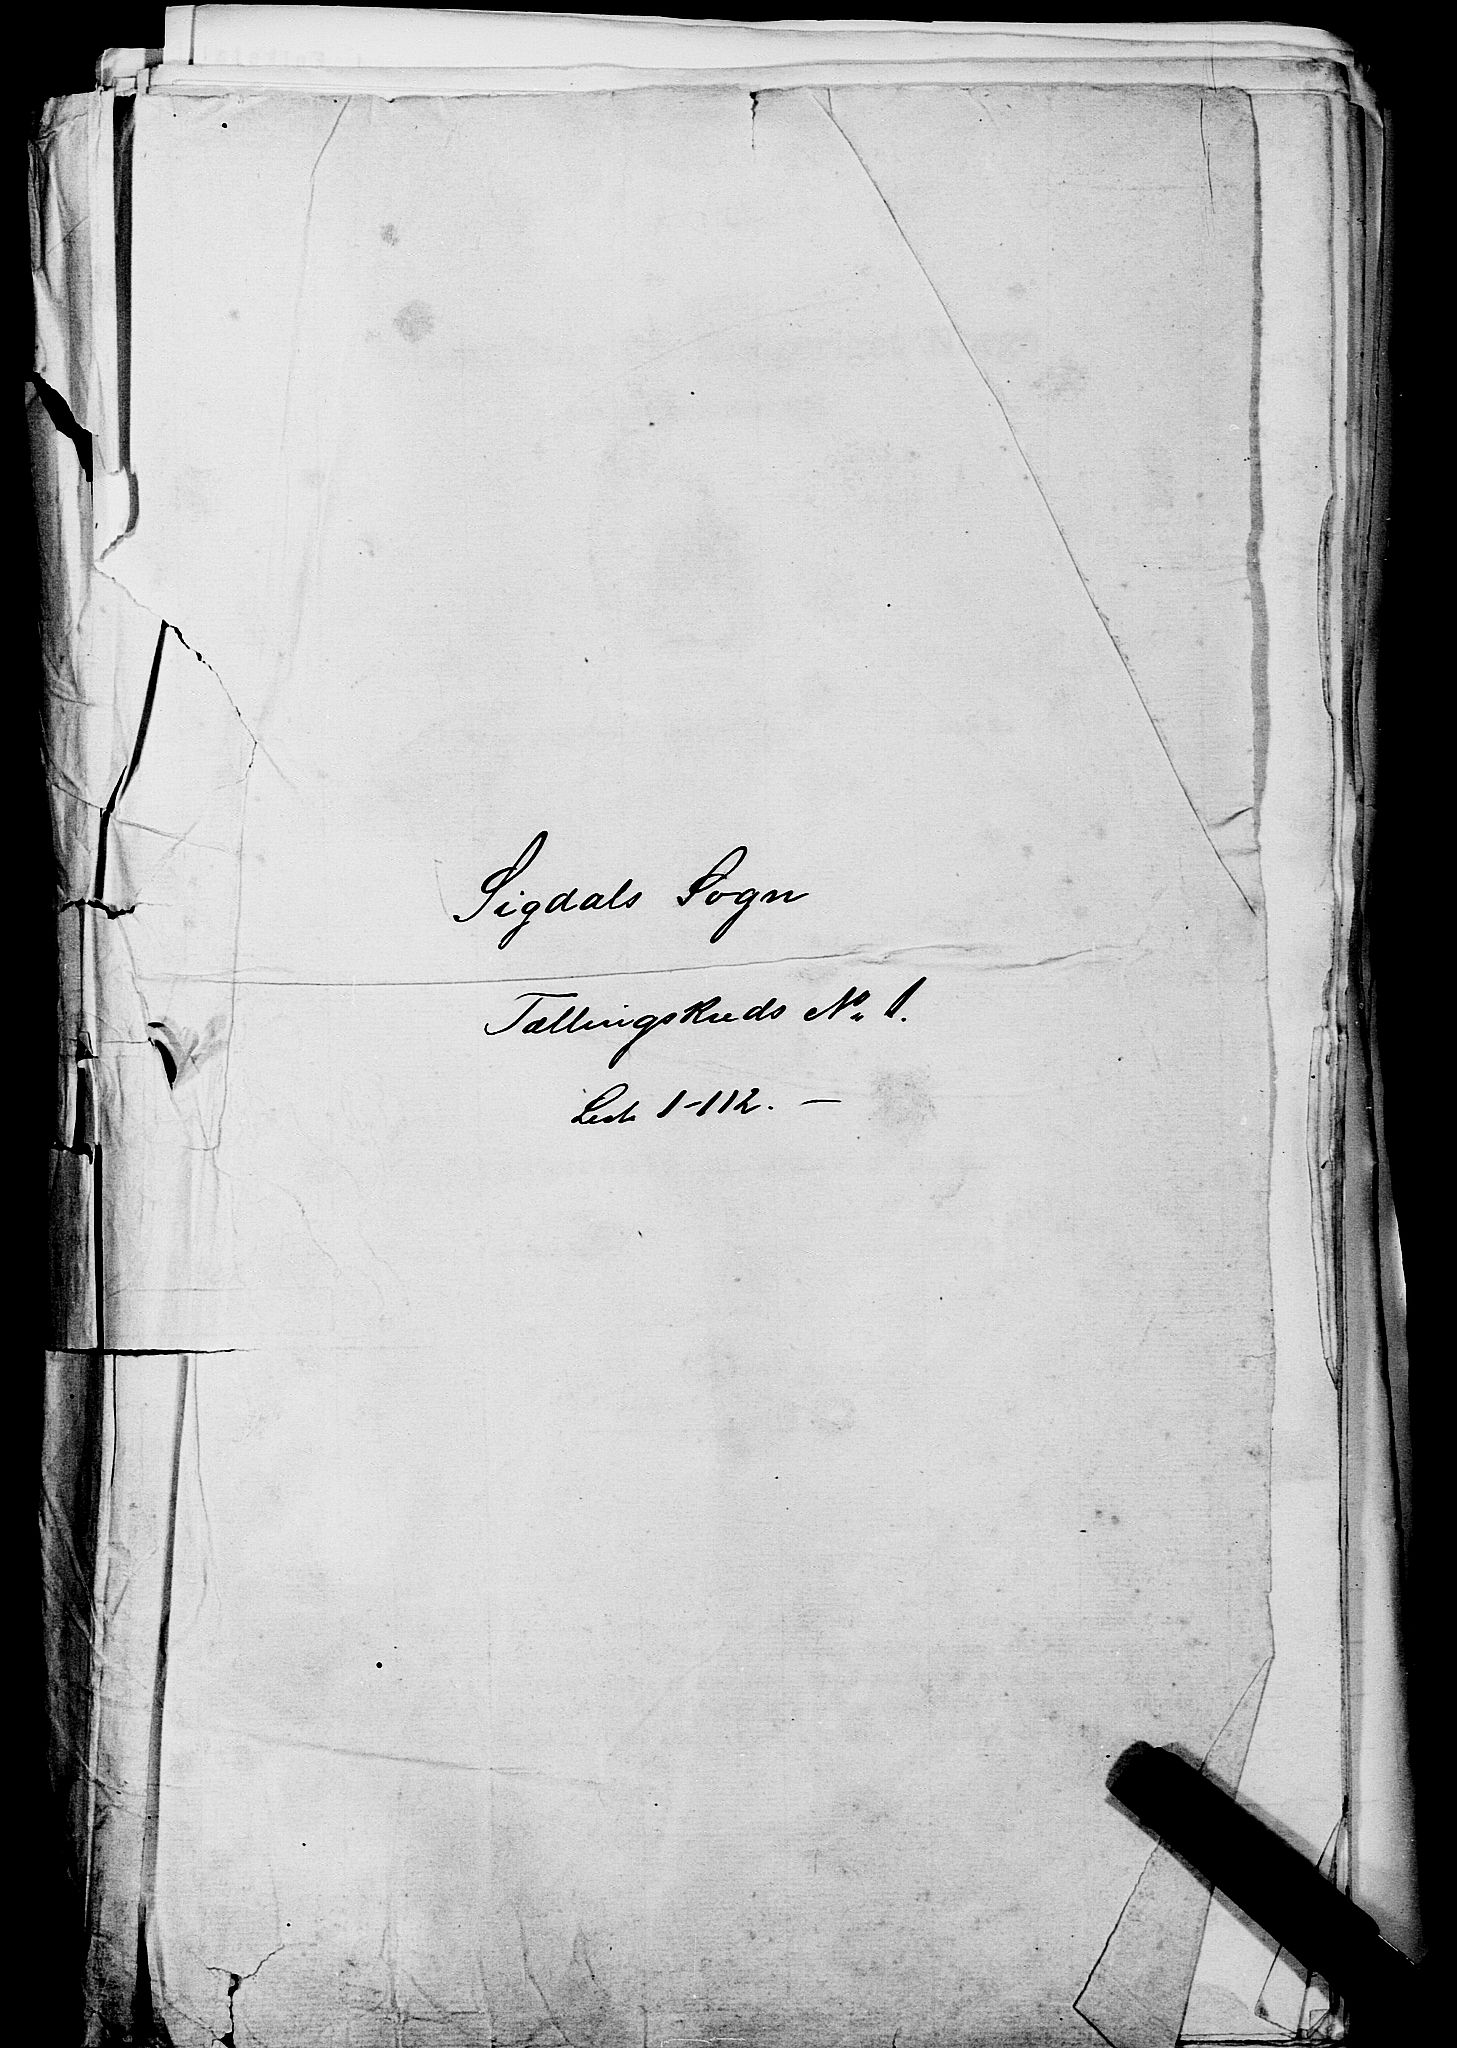 Sigdals Sogn
Tællingskreds No 1.
List 1-112. —